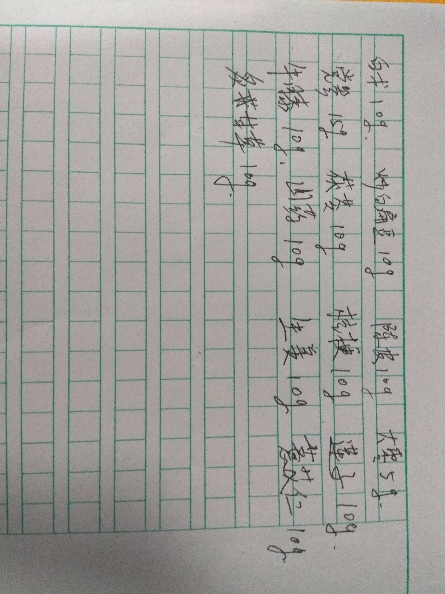 白术10g. 炒白扁豆10g 陈皮10g 大枣5g.
党参15g 茯苓10g 桔梗10g 莲子10g.
牛膝10g. 山药10g 生姜10g 薏苡仁10g.
炙甘草10g.